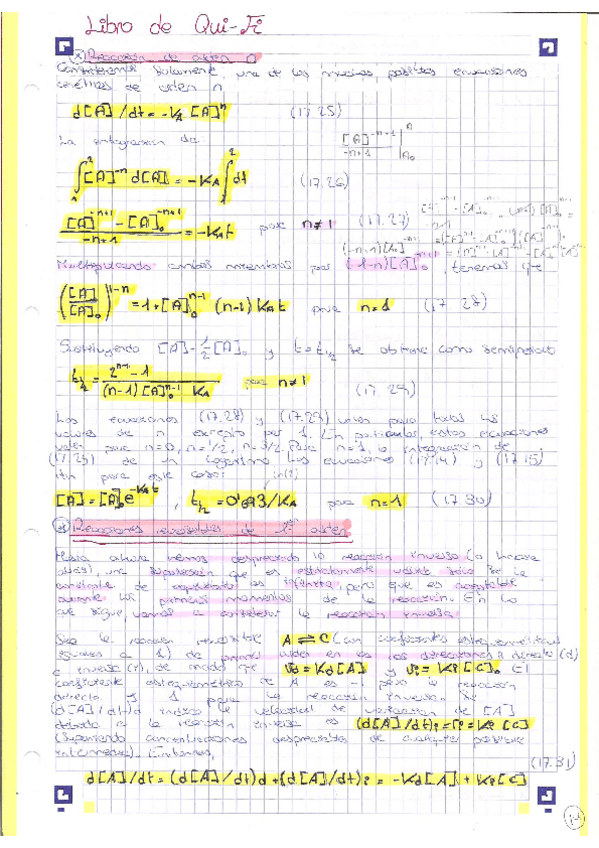 Libro de Qui-Fi
Reacción de orden n
Consideremos solamente una de las muchas posibles ecuaciones
cinéticas de orden n
d[A]/dt = -kA [A]^n (17.25)
La integración da
[A]^-n+1 / -n+1 |A A0
∫1 2 [A]^-n d[A] = -kA ∫1 2 dt (17.26)
[A]^-n+1 - [A]0^-n+1 / -n+1 = -kA t para n≠1 (17.27)
Multiplicando ambos miembros por (1-n)[A]0 tenemos que
([A]/[A]0)^1-n = 1+[A]0^n-1 (n-1) kA t para n=1 (17.28)
Sustituyendo [A]=1/2[A]0 y t=t1/2 se obtiene como semiperiodo
t1/2 = 2^n-1 - 1 / (n-1)[A]0^n-1 kA para n≠1 (17.29)
Las ecuaciones (17.28) y (17.29) valen para todos los
valores de n excepto para 1. En particular, estas ecuaciones
valen para n=0, n=1/2, n=3/2. Para n=1, la integración de
(17.25) da un logaritmo. Las ecuaciones (17.14) y (17.15)
dan para este caso: ln(2)
[A]=[A]0 e^-kA t , t1/2 = 0'693/kA para n=1 (17.30)
Reacciones reversibles de 1er orden
Hasta ahora hemos despreciado la reacción inversa (o hacia
atrás), una suposición que es estrictamente válida sólo si la
constante de equilibrio es infinita, pero que es aceptable
durante los primeros momentos de la reacción. En lo
que sigue, vamos a considerar la reacción inversa.
Sea la reacción reversible A ⇌ C (con coeficientes estequiométricos
iguales a 1) de primer orden en las direcciones directa (d)
e inversa (i), de modo que vd=kd[A] y vi=ki[C]. El
coeficiente estequiométrico de A es -1 para la reacción
directa y 1 para la reacción inversa. Si
(d[A]/dt)d indica la velocidad de variación de [A]
debido a la reacción inversa es (d[A]/dt)i=ri=ki[C]
(suponiendo concentraciones despreciables de cualquier posible
intermedio). Entonces,
(17.31)
d[A]/dt = (d[A]/dt)d + (d[A]/dt)i = -kd[A] + ki[C]
14